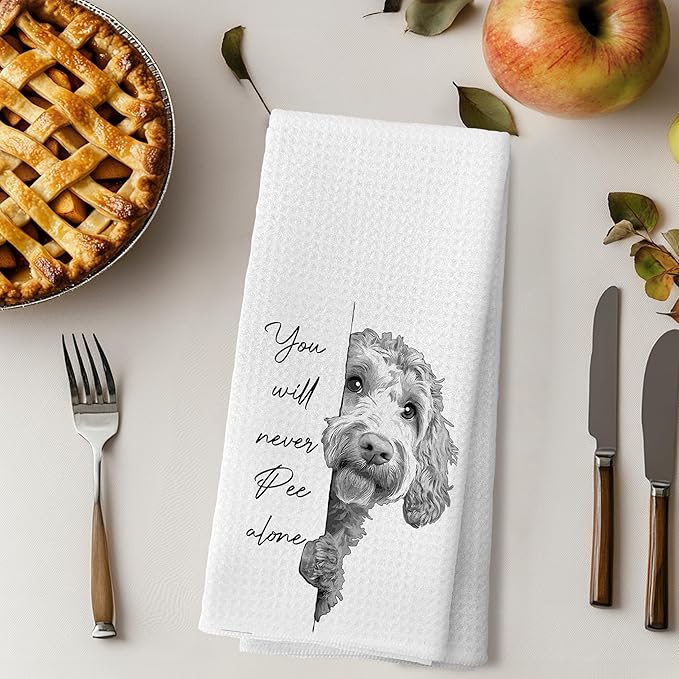 You
will
never
Pee
alone